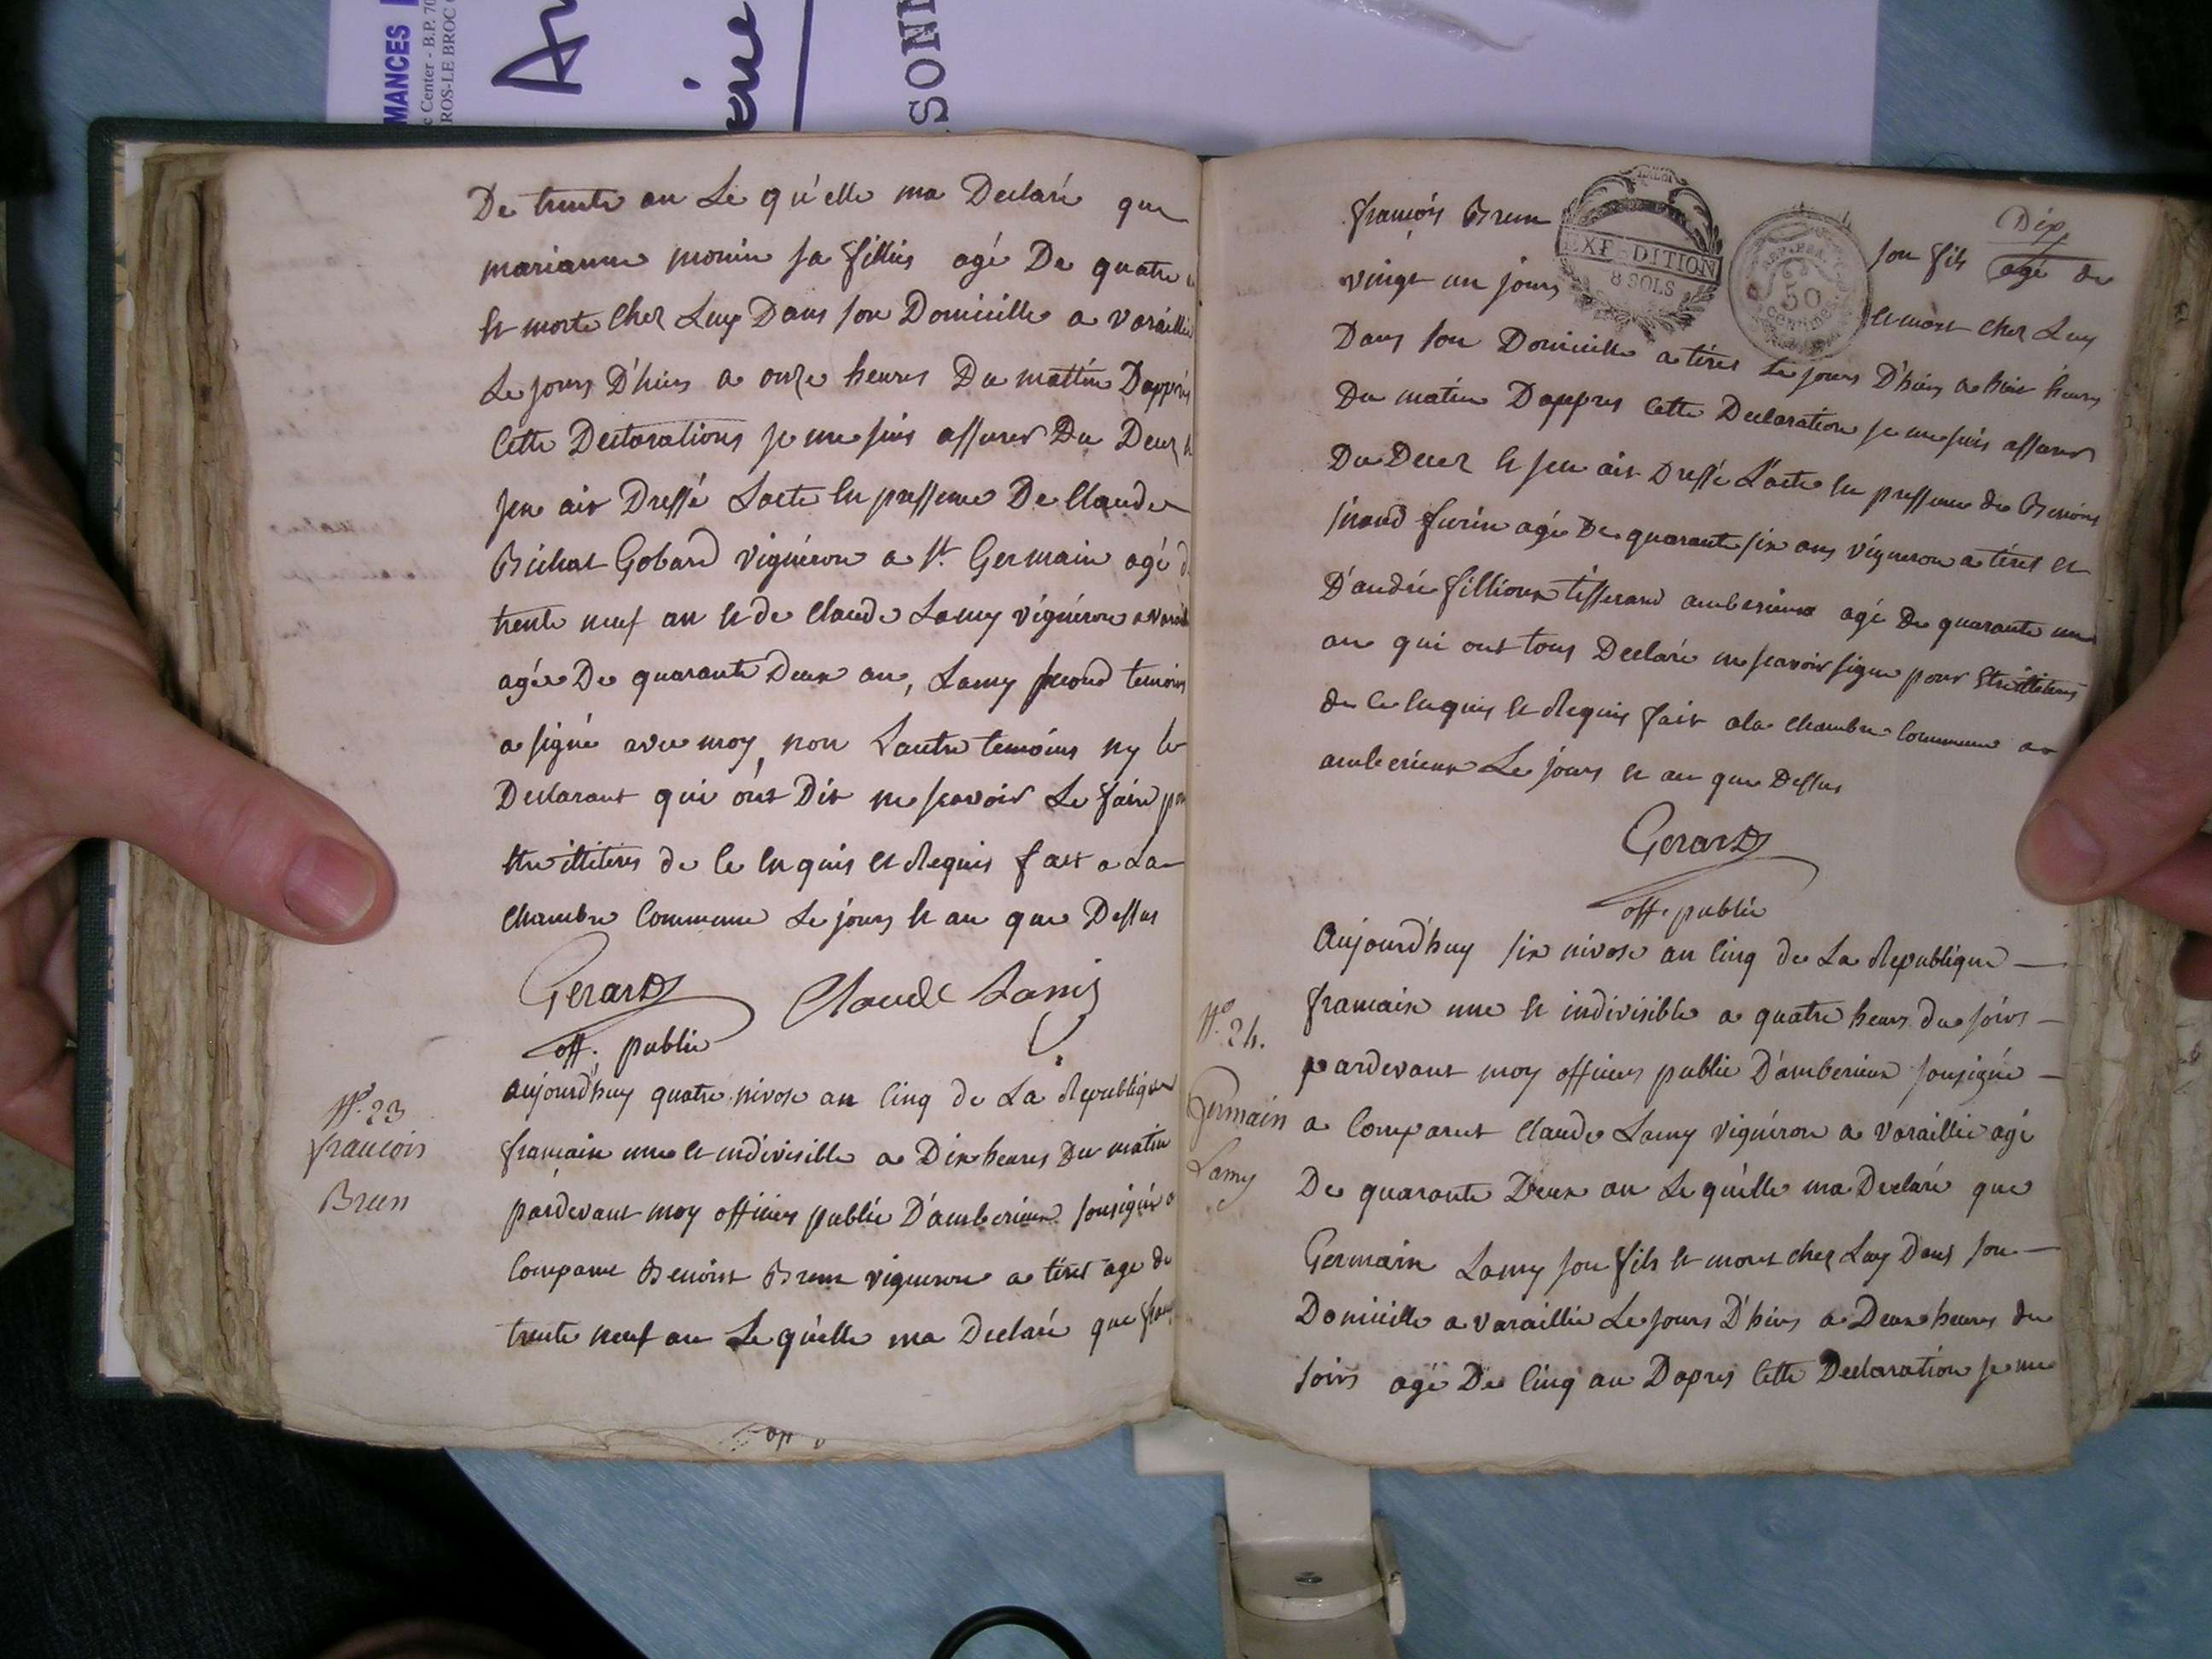 MANCES
e Center - B.P. 70
ROS-LE BROC
SONN
De trente an Le qu'elle ma Declaré que
marianne monin sa fillies agé De quatre
et morte Cher Luy Dans son Domicille a varaillie
Le jours D'hiers a onze heures Du mattin Dapprès
Cette Declarations je me suis assurer Du Decez
Jen ait Dressé Lacte En pressence De Claude
Bichat Gobard vignéron a St. Germain agé
trente neuf an et de Claude Lamy vignéron a
agée De quarante Deux an, Lamy second temoins
a signé avec moy, non Lautre temoins ny le
Declarant qui ont Dit ne scavoir Le faire
Etre illitéres de Ce Enquis et Requis fait a La
Chambre Commune Le jours et an que Dessus
Gerard Claude Lamy
off. public
N°. 23
francois
Brun
aujourd'huy quatre nivose an Cinq de La Republique
francaise une et indivisible a Dix heures Du matin
pardevant moy officiers public D'amberieux sousigné a
Comparue Benoist Brun vigneron a tiret age de
trente neuf an Le quelle ma Declaré que
Dix
françois Brun son fils agé de
vingt un jours et mort cher Luy
EXPEDITION
8 SOLS
REP. FRA.
50
centimes
Dans son Domicille a tiret Le jours D'hiers a huit heures
Du matin Dappres Cette Declaration je me suis assurer
Du Decez et Jen ait Dressé Lacte En pressence de Benoist
furin agé De quarante six ans vigneron a tiret et
D'andré fillioux tisserand amberieux agé De quarante un
an qui ont tous Declaré ne scavoir signe pour Etre illitéres
de Ce Enquis et Requis fait a la Chambre Commune a
amberieux Le jours et an que Dessus
Gerard
off. public
N°. 24.
Germain
Lamy
Aujourd'huy six nivose an Cinq de La Republique
francaise une et indivisible a quatre heurs du soirs
pardevant moy officiers public D'amberieux sousigné
a Comparut Claude Lamy vignéron a varaillie agé
De quarante Deux an Le quelle ma Declaré que
Germain Lamy son fils et mort cher Luy Dans son
Domicille a varaillie Le jours D'hiers a Deux heures du
soirs agé De Cinq an Dapres Cette Declaration je me